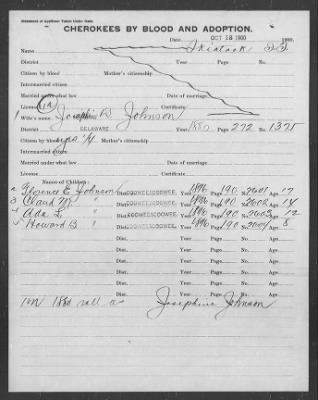 Statement of Applicant Taken Under Oath.
CHEROKEES BY BLOOD AND ADOPTION.
Date OCT 18 1900 1900.
Name Skiatook I.T.
District Year Page No.
Citizen by blood Mother's citizenship
Intermarried citizen
Married under what law Date of marriage
License Certificate
1 Wife's name Josephine B Johnson
District DELAWARE Year 1880 Page 272 No. 1371
Citizen by blood yes Mother's citizenship
Intermarried citizen
Married under what law Date of marriage
License Certificate
Names of Children:
2 Florence E Johnson Dist. COOWEESCOOWEE Year 1896 Page 190 No. 2601 Age 17
3 Claud M. " Dist. COOWEESCOOWEE Year 1896 Page 190 No. 2602 Age 14
4 Ada L. " Dist. COOWEESCOOWEE Year 1896 Page 190 No. 2603 Age 12
5 Howard B. " Dist. COOWEESCOOWEE Year 1896 Page 190 No. 2604 Age 8
Dist. Year Page No. Age
Dist. Year Page No. Age
Dist. Year Page No. Age
Dist. Year Page No. Age
1 on 1880 roll as Josephine Johnson